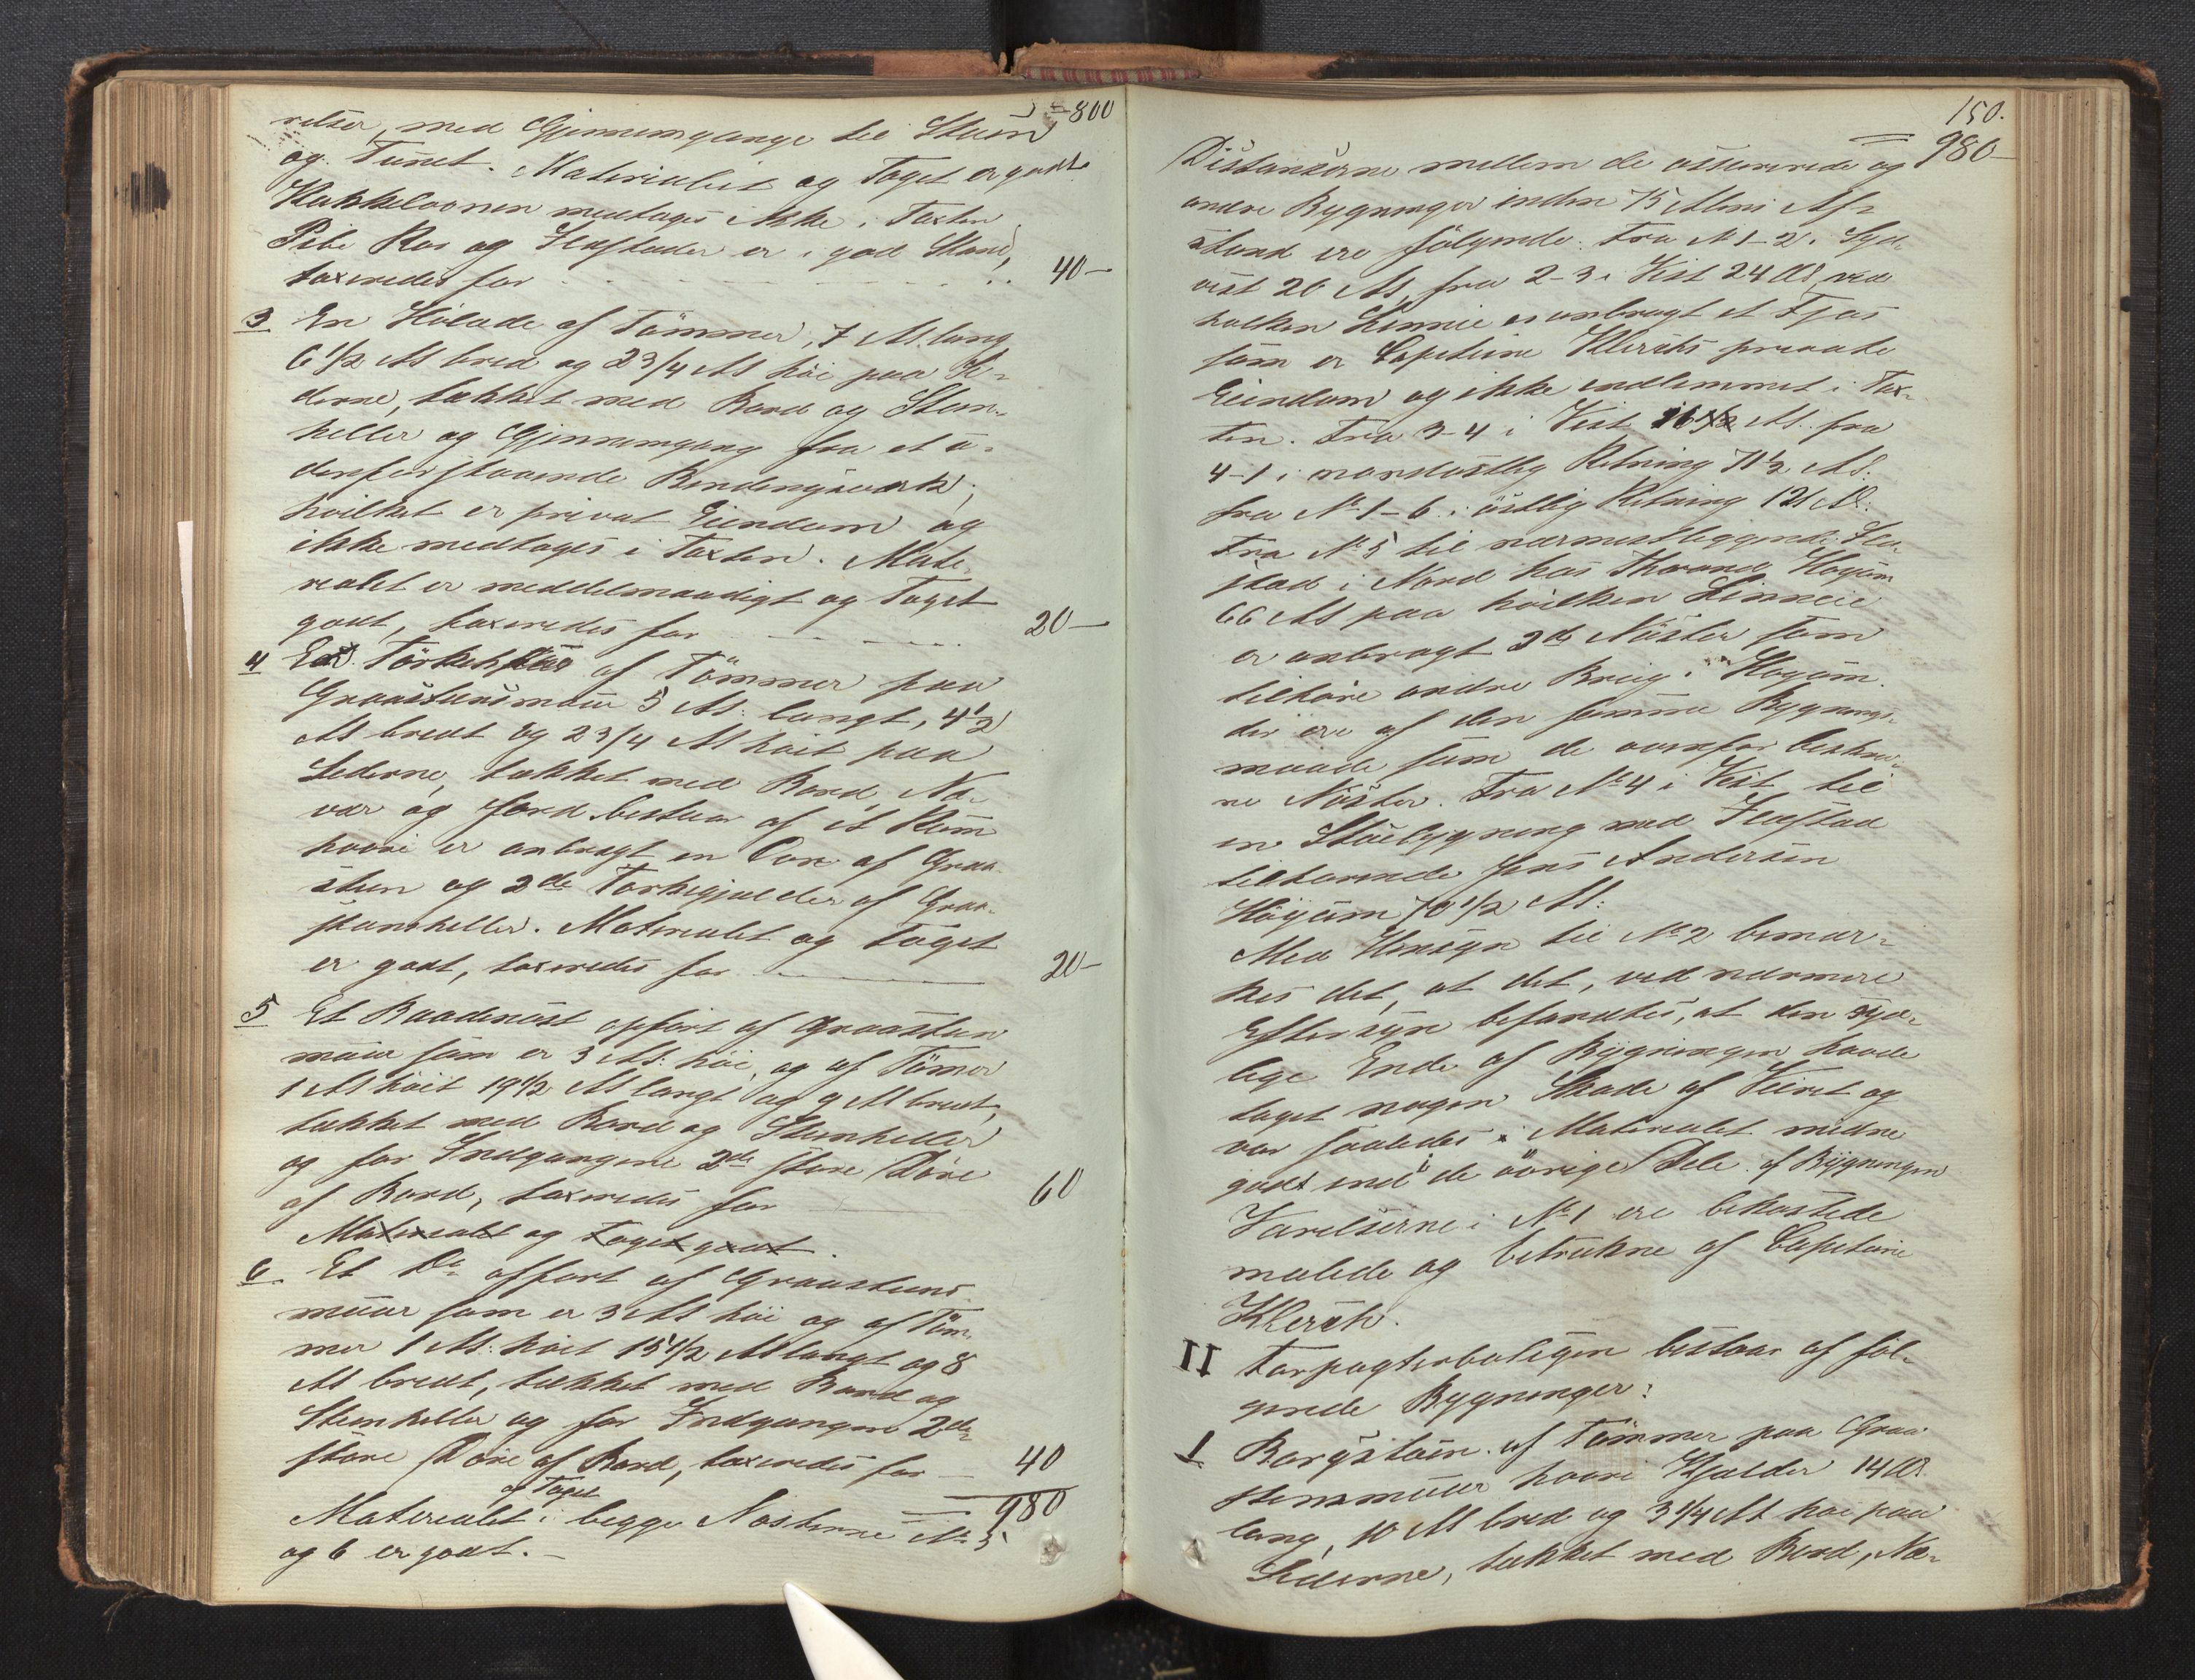 = 800
relser, med Gjennemgange til Stuen
og Tunet. Materialiet og Taget er godt
Kakkelovnen medtages ikke i Taxten
Pibe Rør og Ildstæder er i god Stand,
taxeredes for . . . . 40 –
3 En Hölade af Tömmer, 7 Al. lang
6 1/2 Al bred og 2 3/4 Al höi paa Si-
derne, tækket med Bord og Steen-
heller og Gjennemgang fra et u-
denforstaaende Bindingsværk,
hvilket er privat Eiendom og
ikke medtages i Taxten. Mate-
rialet er meddelmaadigt og Taget
godt, taxeredes for . . . 20 –
4 Et Törkehuus af Tömmer paa
Graasteensmuur 5 Al: langt, 4 1/2
Al bredt og 2 3/4 Al höit paa
Siderne, tækket med Bord, Næ-
ver og Jord bestaar af et Rum
hvori er anbragt en Ovn af Graa-
steen og 2de Törkegjelder af Graa-
steenheller. Materialet og Taget
er godt, taxeredes for 20 –
5 Et Baadenöst opfört af Graasteen
muur som er 3 Al: höi, og af Tömer
1 Al höit 19 1/2 Al langt og 9 Al bredt,
tækket med Bord og Steenheller
og for Indgangene 2de store Döre
af Bord, taxeredes for 60
Materialet og Taget godt.
6 Et Do opfört af Graasteens
muur som er 3 Al höi og af Töm-
mer 1 Al: höit 15 1/2 Al langt og 8
Al bredt, tækket med Bord og
Steenheller og for Indgangen 2de
store Döre af Bord, taxeredes for 40
= 980
og Taget
Materialet i begge Nöstene No 5
og 6 er godt. –
150.
= 980 –
Distanserne mellem de assurerede og
andre Bygninger inden 75 Alens Af-
stand ere fölgende: Fra N 1–2 i Syd-
vest 26 Al, fra 2–3 i Vest 24 Al, ved
hvilken Linnie er anbragt et Fjös
som er Capitaine Klercks private
Eiendom og ikke indlemmet i Tax-
ten. Fra 3–4 i Vest 16 1/2 Al. fra
4–1 i nordöstlig Retning 71 1/2 Al.
fra No 1–6 i östlig Retning 121 Al:
Fra No 5 til nærmestliggende Ild-
stad i Nord hos Thorvald Höyum
66 Al paa hvilken Linnie
er anbragt 3de Nöster som
tilhöre andre Brug i Höyum
der ere af den samme Bygnings-
maade som de ovenfor beskrev-
ne Nöster. Fra No 4 i Vest til
en Stuebygning med Ildstad
tilhörende Jens Andersen
Höyum 70 1/2 Al:
Med Hensyn til No 2 bemær-
kes det, at det, ved nærmere
Eftersyn befandtes, at den syd-
lige Ende af Bygningen havde
taget nogen Skade af Veiret og
var saaledes i Materialet mindre
godt end de övrige Dele af Bygningen
Værelserne i No 1 ere bekostede
malede og betrukne af Capitaine
Klerck.
II Forpagterboligen bestaar af föl-
gende Bygninger:
1 Borgstuen af Tömmer paa Graa
steensmuur hvori Kjelder 14 Al
lang, 10 Al bred og 3 1/4 Al höi paa
Siderne, tækket med Bord, Næ-